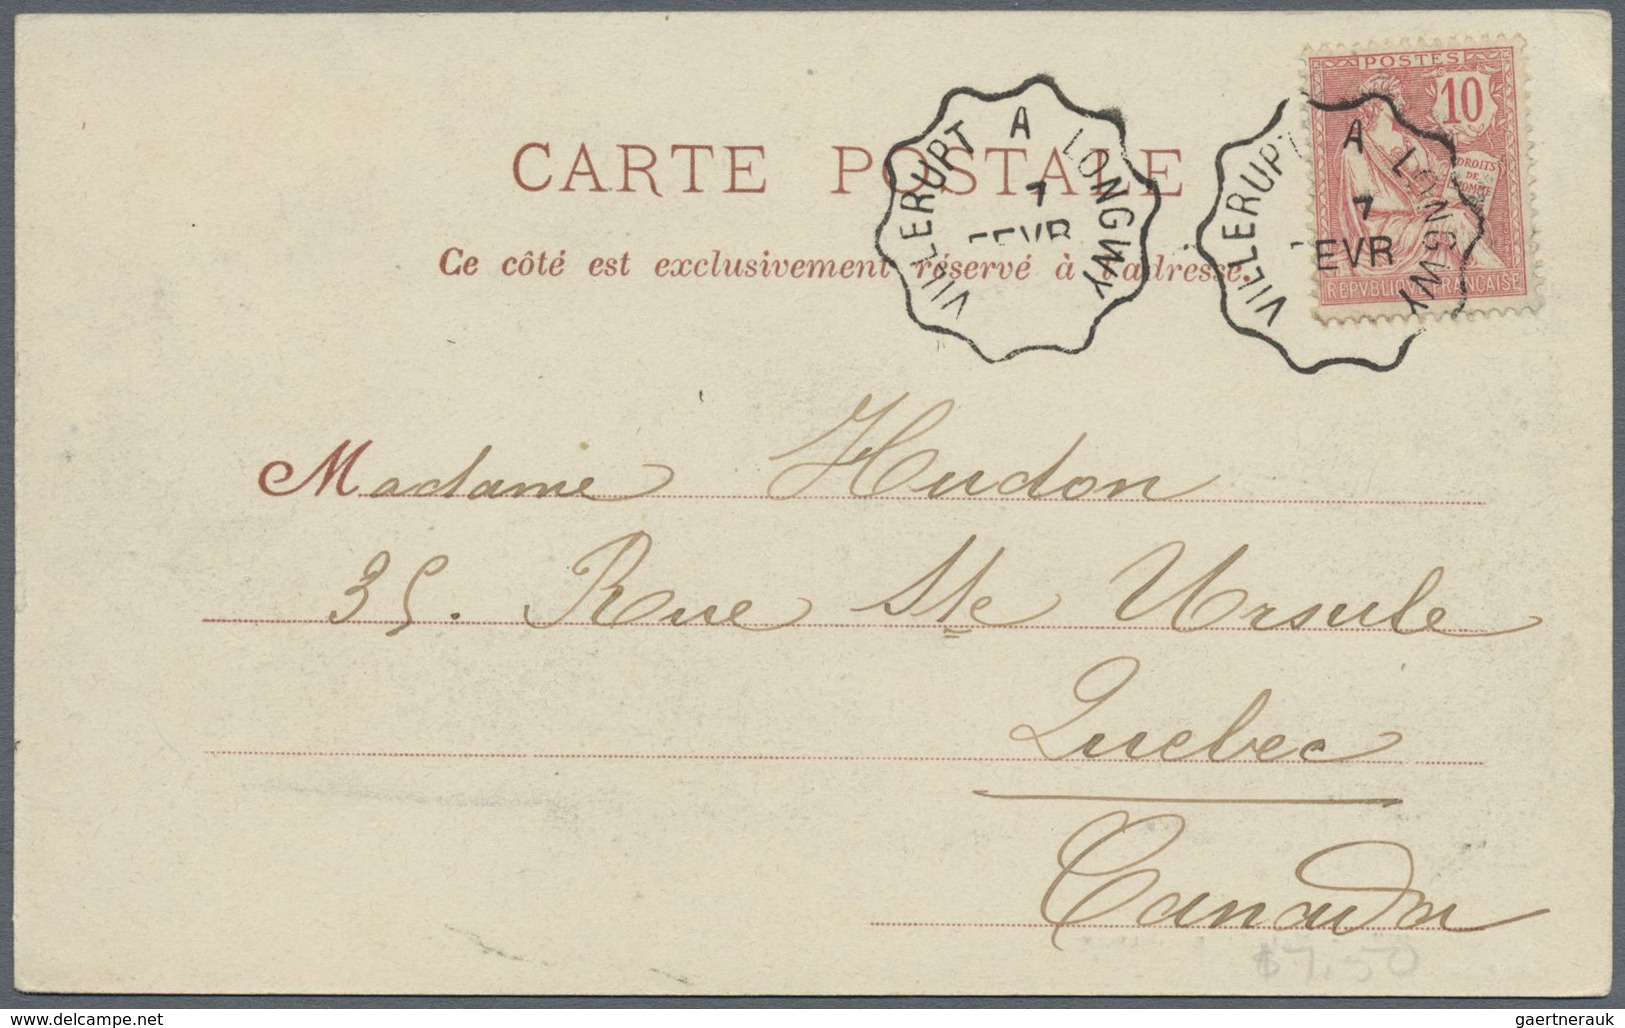 POSTES
10
DROITS
DE
L'HOMME
REPVBLIQUE FRANÇAISE
VILLERUPT A LONGWY
7
FEVR
VILLERUPT A LONGWY
7
FEVR
CARTE POSTALE
Ce côté est exclusivement réservé à l'adresse.
Madame Hudon
35. Rue Ste Ursule
Quebec
Canada
$7.50
www.delcampe.net
gaertnerauk